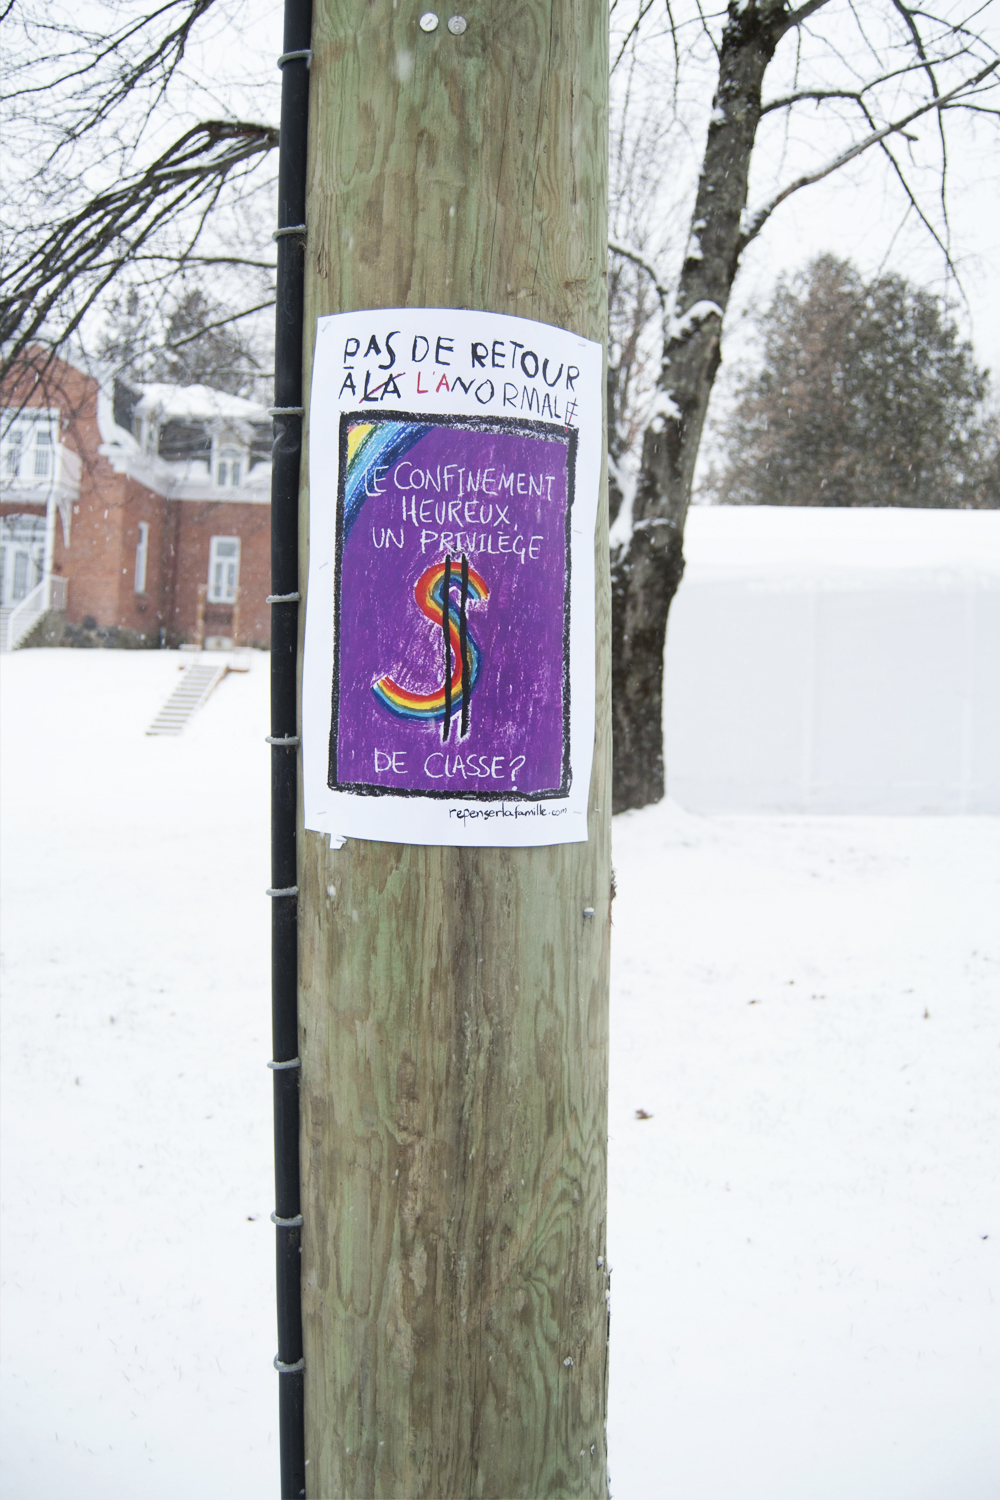 PAS DE RETOUR
À LA L'ANORMALE
LE CONFINEMENT
HEUREUX,
UN PRIVILÈGE
$
DE CLASSE?
repenserlafamille.com